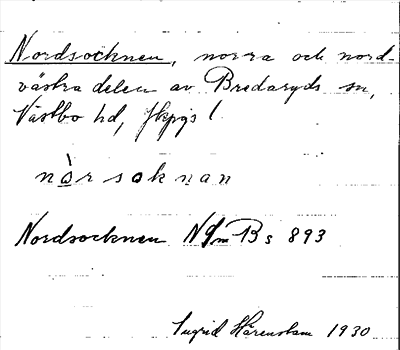 Nordsocknen, norra och nord-
västra delen av Bredaryds sn,
Västbo hd, Jkpgs l
nòrsoknan
Nordsocknen NSmB s 893
Ingrid Härenstam 1930